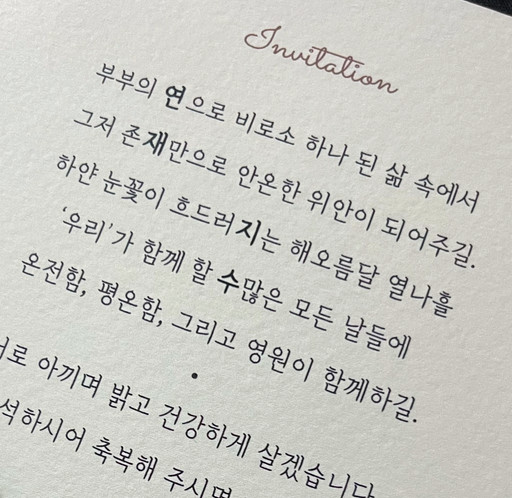 Invitation
부부의 연으로 비로소 하나 된 삶 속에서
그저 존재만으로 안온한 위안이 되어주길.
하얀 눈꽃이 흐드러지는 해오름달 열나흘
‘우리’가 함께 할 수많은 모든 날들에
온전함, 평온함, 그리고 영원이 함께하길.
•
아끼며 밝고 건강하게 살겠습니다
축복해 주시면